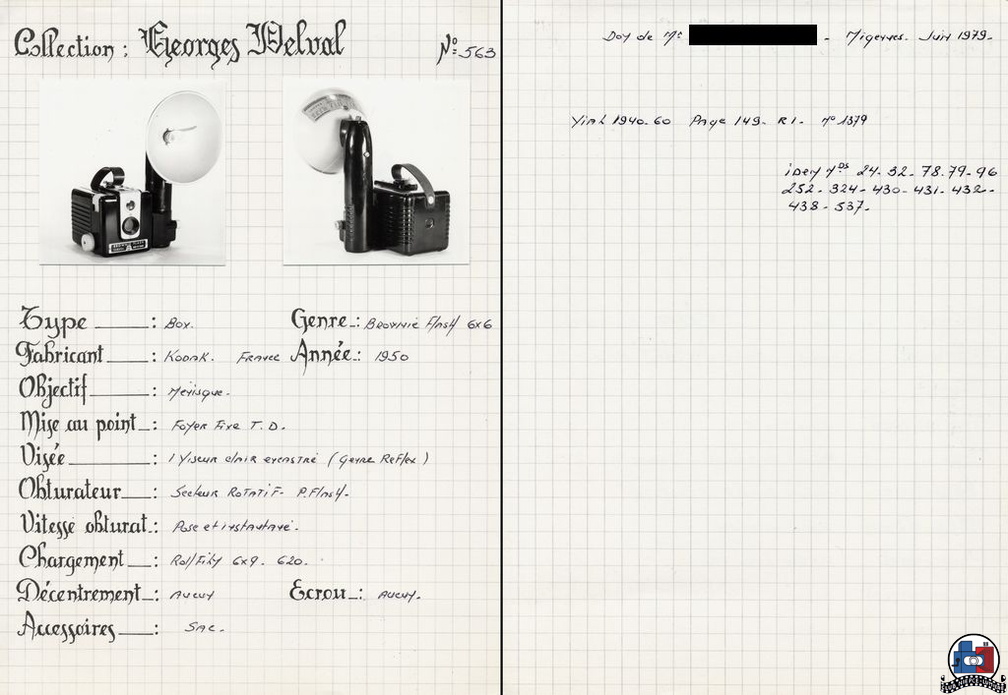 Collection : Georges Delval N° 563
Type : Box.
Genre : Brownie Flash 6x6
Fabricant : Kodak. France
Année : 1950
Objectif : Ménisque.
Mise au point : Foyer Fixe T.D.
Visée : 1 Viseur clair encastré (Genre Reflex)
Obturateur : Secteur Rotatif - P. Flash.
Vitesse obturat. : Pose et instantané.
Chargement : Roll Film 6x9. 620.
Décentrement : Aucun
Ecrou : Aucun.
Accessoires : Sac.
Don de Mr - Migennes. Juin 1979.
1940-60 Page 149. R1. N° 1379
idem Nos 24-32-78.79-96
252-324-430-431-432-
438-537.